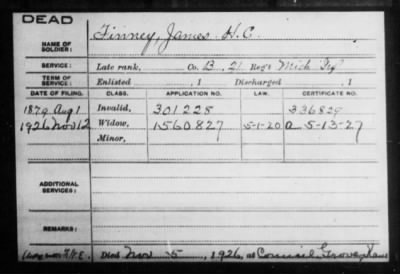 DEAD
NAME OF SOLDIER: Finney, James H. C.
SERVICE: Late rank, Co. B. 21 Reg't Mich Inf
TERM OF SERVICE: Enlisted , 1 Discharged , 1
DATE OF FILING. CLASS. APPLICATION NO. LAW. CERTIFICATE NO.
1879 Aug 1 Invalid, 301228 336829
1926 Nov 12 Widow, 1560827 5-1-20 a 5-13-27
Minor,
ADDITIONAL SERVICES:
REMARKS:
Died Nov 5, 1926, at Council Grove Kans